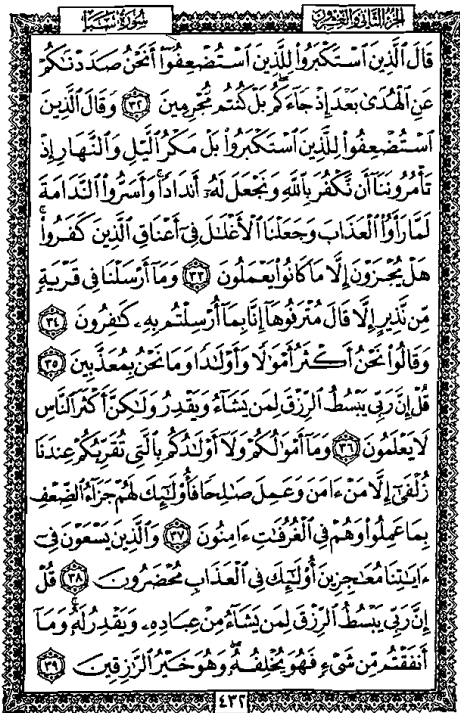 الجزء الثاني والعشرون
سورة سبأ
قَالَ ٱلَّذِينَ ٱسْتَكْبَرُوا۟ لِلَّذِينَ ٱسْتُضْعِفُوٓا۟ أَنَحْنُ صَدَدْنَـٰكُمْ
عَنِ ٱلْهُدَىٰ بَعْدَ إِذْ جَآءَكُم بَلْ كُنتُم مُّجْرِمِينَ ٣٢ وَقَالَ ٱلَّذِينَ
ٱسْتُضْعِفُوا۟ لِلَّذِينَ ٱسْتَكْبَرُوا۟ بَلْ مَكْرُ ٱلَّيْلِ وَٱلنَّهَارِ إِذْ
تَأْمُرُونَنَآ أَن نَّكْفُرَ بِٱللَّهِ وَنَجْعَلَ لَهُۥٓ أَندَادًا ۚ وَأَسَرُّوا۟ ٱلنَّدَامَةَ
لَمَّا رَأَوُا۟ ٱلْعَذَابَ وَجَعَلْنَا ٱلْأَغْلَـٰلَ فِىٓ أَعْنَاقِ ٱلَّذِينَ كَفَرُوا۟ ۚ
هَلْ يُجْزَوْنَ إِلَّا مَا كَانُوا۟ يَعْمَلُونَ ٣٣ وَمَآ أَرْسَلْنَا فِى قَرْيَةٍ
مِّن نَّذِيرٍ إِلَّا قَالَ مُتْرَفُوهَآ إِنَّا بِمَآ أُرْسِلْتُم بِهِۦ كَـٰفِرُونَ ٣٤
وَقَالُوا۟ نَحْنُ أَكْثَرُ أَمْوَٰلًا وَأَوْلَـٰدًا وَمَا نَحْنُ بِمُعَذَّبِينَ ٣٥
قُلْ إِنَّ رَبِّى يَبْسُطُ ٱلرِّزْقَ لِمَن يَشَآءُ وَيَقْدِرُ وَلَـٰكِنَّ أَكْثَرَ ٱلنَّاسِ
لَا يَعْلَمُونَ ٣٦ وَمَآ أَمْوَٰلُكُمْ وَلَآ أَوْلَـٰدُكُم بِٱلَّتِى تُقَرِّبُكُمْ عِندَنَا
زُلْفَىٰٓ إِلَّا مَنْ ءَامَنَ وَعَمِلَ صَـٰلِحًا فَأُو۟لَـٰٓئِكَ لَهُمْ جَزَآءُ ٱلضِّعْفِ
بِمَا عَمِلُوا۟ وَهُمْ فِى ٱلْغُرُفَـٰتِ ءَامِنُونَ ٣٧ وَٱلَّذِينَ يَسْعَوْنَ فِىٓ
ءَايَـٰتِنَا مُعَـٰجِزِينَ أُو۟لَـٰٓئِكَ فِى ٱلْعَذَابِ مُحْضَرُونَ ٣٨ قُلْ
إِنَّ رَبِّى يَبْسُطُ ٱلرِّزْقَ لِمَن يَشَآءُ مِنْ عِبَادِهِۦ وَيَقْدِرُ لَهُۥ ۚ وَمَآ
أَنفَقْتُم مِّن شَىْءٍ فَهُوَ يُخْلِفُهُۥ ۖ وَهُوَ خَيْرُ ٱلرَّٰزِقِينَ ٣٩
٤٣٢